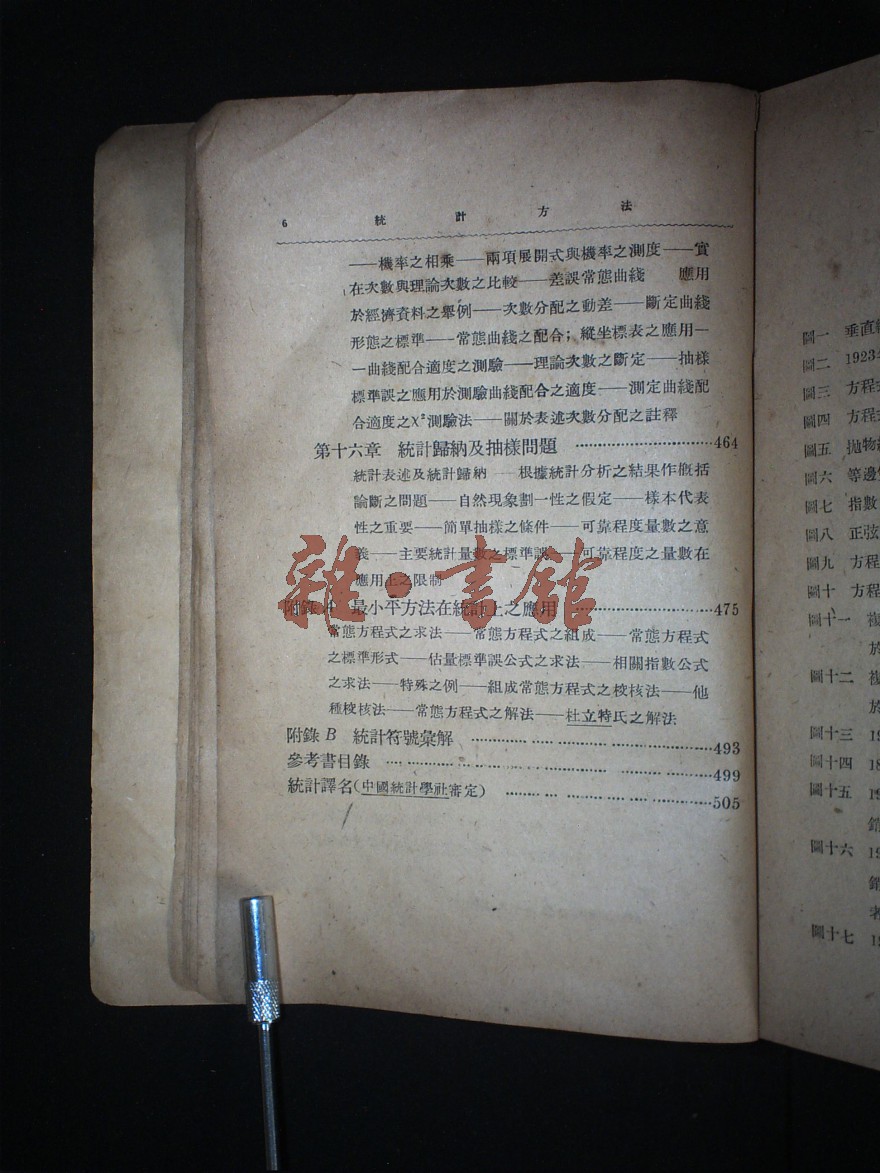 6 統計方法
——機率之相乘——兩項展開式與機率之測度——實
在次數與理論次數之比較——差誤常態曲綫 應用
於經濟資料之舉例——次數分配之動差——斷定曲綫
形態之標準——常態曲綫之配合；縱坐標表之應用—
—曲綫配合適度之測驗——理論次數之斷定——抽樣
標準誤之應用於測驗曲綫配合之適度——測定曲綫配
合適度之X²測驗法——關於表述次數分配之註釋
第十六章 統計歸納及抽樣問題 ……………………464
統計表述及統計歸納——根據統計分析之結果作概括
論斷之問題——自然現象劃一性之假定——樣本代表
性之重要——簡單抽樣之條件——可靠程度量數之意
義——主要統計量數之標準誤——可靠程度之量數在
應用上之限制
附錄A 最小平方法在統計上之應用 ……………………475
常態方程式之求法——常態方程式之組成——常態方程式
之標準形式——估量標準誤公式之求法——相關指數公式
之求法——特殊之例——組成常態方程式之校核法——他
種校核法——常態方程式之解法——杜立特氏之解法
附錄B 統計符號彙解 ……………………493
參考書目錄 ……………………499
統計譯名(中國統計學社審定) ……………………505
雜·書館
圖一 垂直
圖二 1923
圖三 方程
圖四 方程
圖五 拋物
圖六 等邊
圖七 指數
圖八 正弦
圖九 方程
圖十 方程
圖十一 複
於
圖十二 複
於
圖十三 19
圖十四 18
圖十五 19
銷
圖十六 19
銷
者
圖十七 19